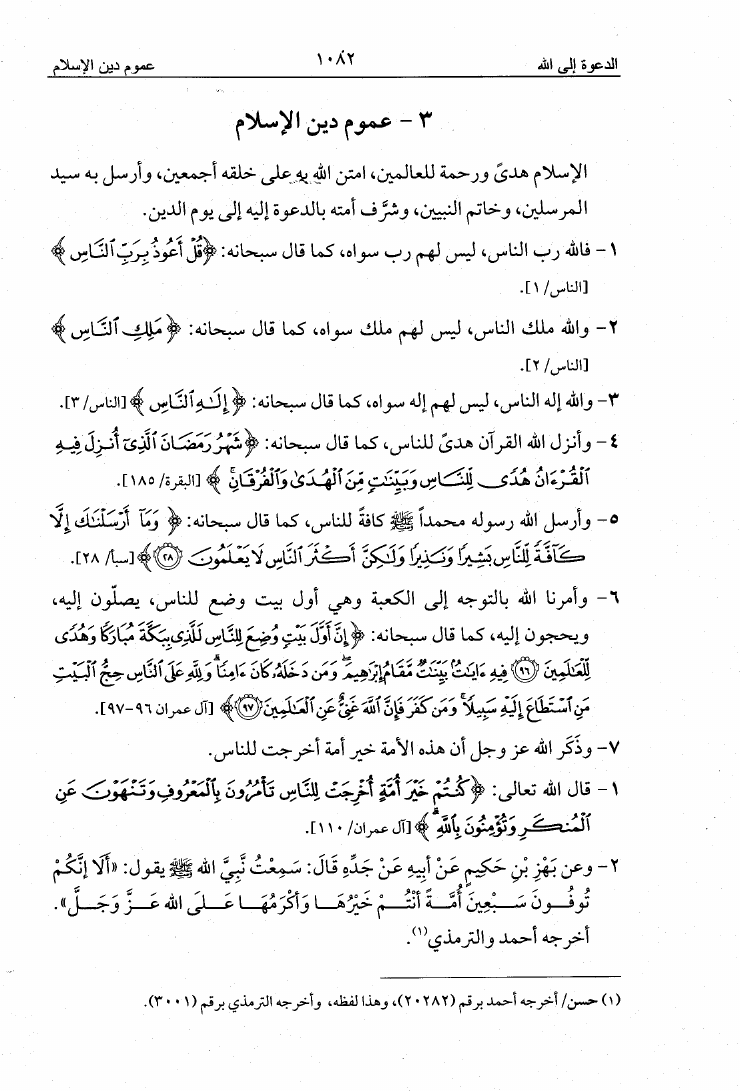 الدعوة إلى الله
١٠٨٢
عموم دين الإسلام
٣ - عموم دين الإسلام
الإسلام هدىً ورحمة للعالمين، امتن الله به على خلقه أجمعين، وأرسل به سيد
المرسلين، وخاتم النبيين، وشرَّف أمته بالدعوة إليه إلى يوم الدين.
١- فالله رب الناس، ليس لهم رب سواه، كما قال سبحانه: ﴿قُلْ أَعُوذُ بِرَبِّ ٱلنَّاسِ﴾
[الناس/ ١].
٢- والله ملك الناس، ليس لهم ملك سواه، كما قال سبحانه: ﴿مَلِكِ ٱلنَّاسِ﴾
[الناس/ ٢].
٣- والله إله الناس، ليس لهم إله سواه، كما قال سبحانه: ﴿إِلَٰهِ ٱلنَّاسِ﴾ [الناس/ ٣].
٤- وأنزل الله القرآن هدىً للناس، كما قال سبحانه: ﴿شَهْرُ رَمَضَانَ ٱلَّذِىٓ أُنزِلَ فِيهِ
ٱلْقُرْءَانُ هُدًى لِّلنَّاسِ وَبَيِّنَٰتٍ مِّنَ ٱلْهُدَىٰ وَٱلْفُرْقَانِ﴾ [البقرة/ ١٨٥].
٥- وأرسل الله رسوله محمداً ﷺ كافةً للناس، كما قال سبحانه: ﴿وَمَآ أَرْسَلْنَٰكَ إِلَّا
كَآفَّةً لِّلنَّاسِ بَشِيرًا وَنَذِيرًا وَلَٰكِنَّ أَكْثَرَ ٱلنَّاسِ لَا يَعْلَمُونَ ٢٨﴾ [سبأ/ ٢٨].
٦- وأمرنا الله بالتوجه إلى الكعبة وهي أول بيت وضع للناس، يصلّون إليه،
ويحجون إليه، كما قال سبحانه: ﴿إِنَّ أَوَّلَ بَيْتٍ وُضِعَ لِلنَّاسِ لَلَّذِى بِبَكَّةَ مُبَارَكًا وَهُدًى
لِّلْعَٰلَمِينَ ٩٦ فِيهِ ءَايَٰتٌۢ بَيِّنَٰتٌ مَّقَامُ إِبْرَٰهِيمَ ۖ وَمَن دَخَلَهُۥ كَانَ ءَامِنًا ۗ وَلِلَّهِ عَلَى ٱلنَّاسِ حِجُّ ٱلْبَيْتِ
مَنِ ٱسْتَطَاعَ إِلَيْهِ سَبِيلًا ۚ وَمَن كَفَرَ فَإِنَّ ٱللَّهَ غَنِىٌّ عَنِ ٱلْعَٰلَمِينَ ٩٧﴾ [آل عمران ٩٦-٩٧].
٧- وذكَر الله عز وجل أن هذه الأمة خير أمة أخرجت للناس.
١- قال الله تعالى: ﴿كُنتُمْ خَيْرَ أُمَّةٍ أُخْرِجَتْ لِلنَّاسِ تَأْمُرُونَ بِٱلْمَعْرُوفِ وَتَنْهَوْنَ عَنِ
ٱلْمُنكَرِ وَتُؤْمِنُونَ بِٱللَّهِ ۗ﴾ [آل عمران/ ١١٠].
٢- وعن بَهْزِ بْنِ حَكِيمٍ عَنْ أَبِيهِ عَنْ جَدِّهِ قَالَ: سَمِعْتُ نَبِيَّ الله ﷺ يقول: «أَلَا إنَّكُمْ
تُوفُونَ سَبْعِينَ أُمَّةً أَنْتُمْ خَيْرُهَا وَأكْرَمُهَا عَلَى الله عَزَّ وَجَلَّ».
أخرجه أحمد والترمذي(١).
(١) حسن/ أخرجه أحمد برقم (٢٠٢٨٢)، وهذا لفظه، وأخرجه الترمذي برقم (٣٠٠١).